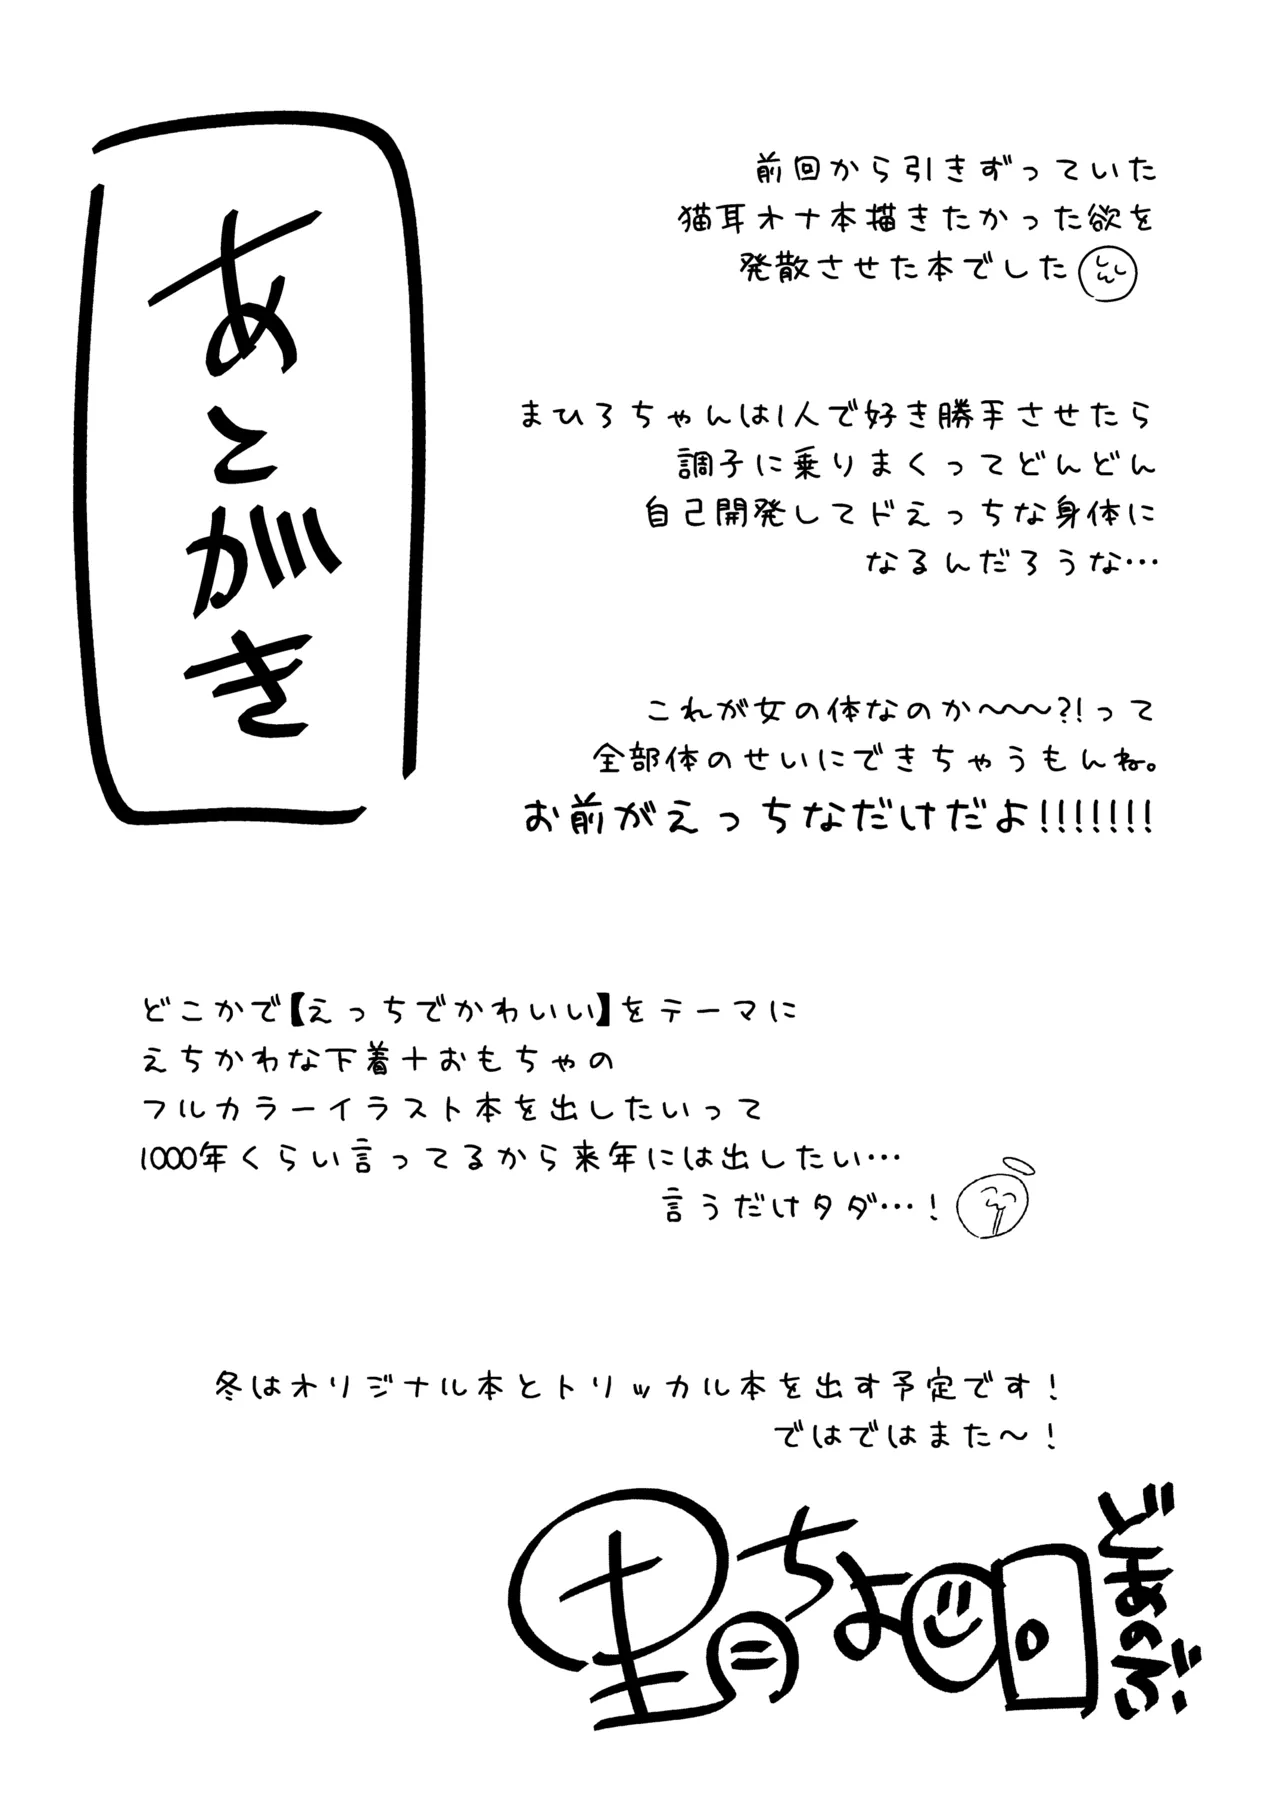 あとがき
前回から引きずっていた
猫耳オナ本描きたかった欲を
発散させた本でした
まひろちゃんは1人で好き勝手させたら
調子に乗りまくってどんどん
自己開発してドえっちな身体に
なるんだろうな…
これが女の体なのか〜〜〜?!って
全部体のせいにできちゃうもんね。
お前がえっちなだけだよ!!!!!!!
どこかで【えっちでかわいい】をテーマに
えちかわな下着+おもちゃの
フルカラーイラスト本を出したいって
1000年くらい言ってるから来年には出したい…
言うだけタダ…!
冬はオリジナル本とトリッカル本を出す予定です!
ではではまた〜!
どあのぶ